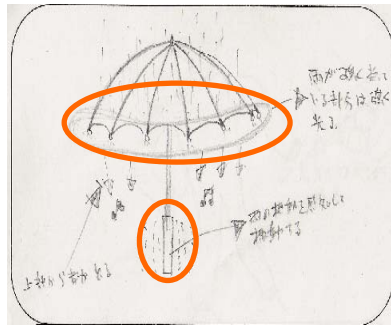 雨が強く当って
いる部分は強く
光る
雨の振動を感知して
振動する
上部から音が出る